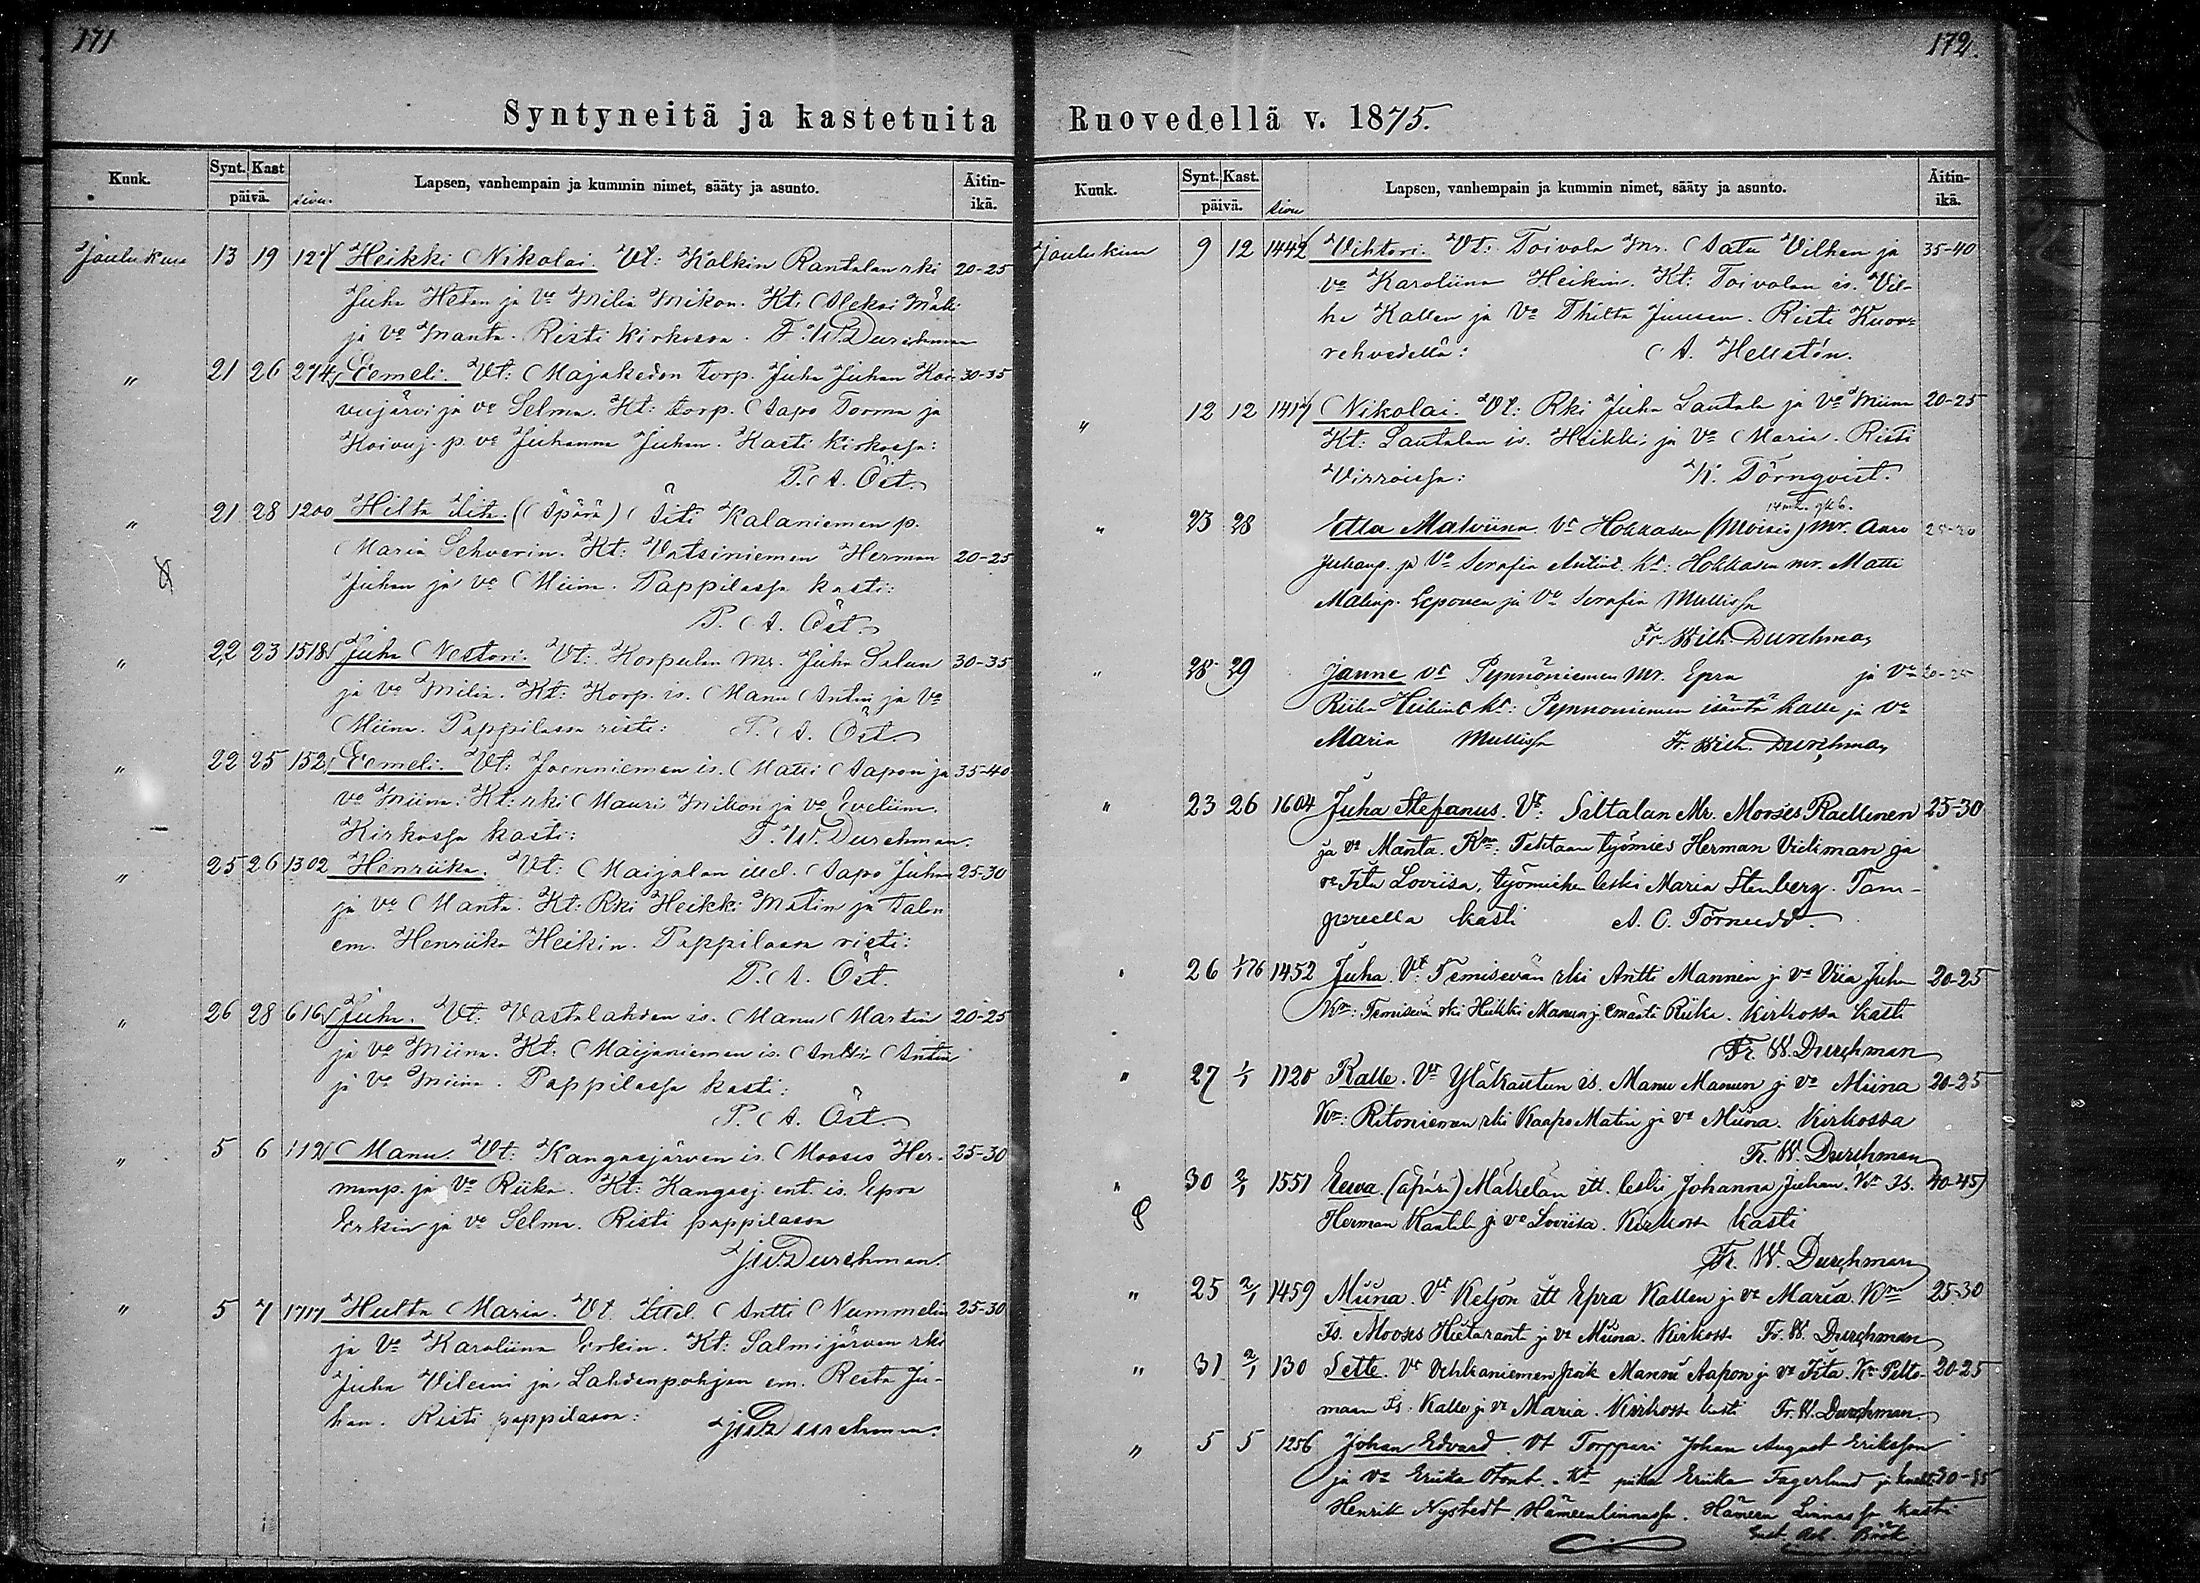 171
Syntyneitä ja kastetuita
Kuuk. Synt. Kast päivä. sivu. Lapsen, vanhempain ja kummin nimet, sääty ja asunto. Äitin-ikä.
Joulukuu 13 19 127 Heikki Nikolai. Vt: Kalkin Rantalan rki 20-25
Juha Hetan ja vo Milia Mikon. Kt: Aleksi Matti
ja vo Manta. Risti kirkossa. F. W. Durchman
" 21 26 274 Eemeli. Vt: Majakedon torp. Juha Juhan Koi- 30-35
vujärvi ja vo Selma. Kt: torp. Aapo Torma ja
Koivuj. p. vo Juhanna Juhan. Kasti kirkossa:
P. A. Öst.
" 21 28 1200 Hilta Iita. (Äpärä) Äiti Kalaniemen p.
" Maria Sehverin. Kt: Vatsiniemen Herman 20-25
Juhan ja vo Miina. Pappilassa kasti:
P. A. Öst.
" 22 23 1518 Juha Nestori. Vt: Korpulan Mr. Juha Salun 30-35
ja vo Milia. Kt: Korp. is. Manu Antin ja Vo
Miina. Pappilassa risti: P. A. Öst.
" 22 25 152 Eemeli. Vt: Joenniemen is. Matti Aapon ja 35-40
vo Miina. Kt: rki Mauri Mikon ja vo Eveliina.
Kirkossa kasti: F. W. Durchman.
" 25 26 1302 Henriika. Vt: Maijalan itlel. Aapo Juhan 25-30
ja vo Manta. Kt: Rki Heikki Matin ja talu
em. Henriika Heikin. Pappilassa risti:
P. A. Öst.
" 26 28 616 Juha. Vt: Vastalahden is. Manu Martin 20-25
ja vo Miina. Kt: Maijaniemen is. Antti Antin
ja vo Miina. Pappilassa kasti:
P. A. Öst.
" 5 6 112 Manu. Vt: Kangasjärven is. Mooses Her- 25-30
manp. ja Vo Riika. Kt: Kangasj. ent. is. Epra
Erkin ja vo Selma. Risti pappilassa
F. W. Durchman.
" 5 7 1717 Hulta Maria. Vt. Itlel. Antti Nummelin 25-30
ja Vo Karoliina Erkin. Kt: Salmijärven rki
Juha Vileeni ja Lahdenpohjan em. Reeta Ju-
han. Risti pappilassa: F. W. Durchman.
172.
Ruovedellä v. 1875.
Kuuk. Synt. Kast. päivä. sivu Lapsen, vanhempain ja kummin nimet, sääty ja asunto. Äitin-ikä.
Joulukuu 9 12 1442 Vihtori. Vt: Toivola Mr. Aatu Vilhen ja 35-40
vo Karoliina Heikin. Kt: Toivolan is. Vil-
he Kallen ja Vo Thilta Juusen. Risti Kuor-
rehvedellä: A. Hellstén.
" 12 12 1417 Nikolai. Vt: Rki Juha Lautala ja Vo Miina 20-25
Kt: Lautalan is. Heikki ja Vo Maria. Risti
Virroissa: K. Törnqvist.
" 23 28 Etla Malviina. Vt Hokkaden (Moisio) Mr. Aaro 25-30
Juhanp. ja Vo Serafia Antint. Kt: Hokkaden mr. Matti
Matinp. Leponen ja Vo Serafia Mullissa
Fr. Wilh. Durchman
" 28 29 Janne Vt Pynnöniemen Mr. Epra ja Vo 20-25
Riika Heikint Kt: Pynnöniemen isäntä Kalle ja Vo
Maria Mullissa Fr. Wilh. Durchman
" 23 26 1604 Juha Stefanus. Vt: Siltalan Mr. Mooses Raellinen 25-30
ja vo Manta. Km: Tehtaan työmies Herman Vidman ja
vo Iita Loviisa, työmiehen leski Maria Stenberg. Tam-
pereella kasti A. O. Törnudd.
" 26 1/1 76 1452 Juha. Vt: Temisevän rki Antti Mannin j. vo Viia Juha 20-25
Km: Temisevä rki Heikki Manun j. emäntä Riika. Kirkossa kasti
Fr. W. Durchman
" 27 1/1 1120 Kalle. Vt Yläkautun is. Manu Manun j. vo Miina 20-25
Km: Ritoniemen rki Kaapo Matin j. vo Miina. Kirkossa
Fr. W. Durchman
" 30 2/1 1551 Eewa. (äpärä) Mäkelän itt. leski Johanna Juhan. Km Is. 40-45
Herman Kantel j. vo Loviisa. Kirkossa kasti
Fr. W. Durchman
" 25 2/1 1459 Miina. Vt Keljon itt Epra Kallen j. vo Maria. Km 25-30
Is. Mooses Hietarant j. vo Miina. Kirkossa Fr. W. Durchman
" 31 2/1 130 Sette. Vt Vehkaniemen poik Mannu Aapon j. vo Iita. Km Pelto- 20-25
maan Is. Kalle j. vo Maria. Kirkossa kasti Fr. W. Durchman.
" 5 5 1256 Johan Edvard. Vt Torppari Johan August Eriksson
ja Vo Erika Otont. Kt piika Erika Fagerlund ja 30-35
Henrik Nystedt Hämeenlinnassa. Hämeen Linnassa kasti